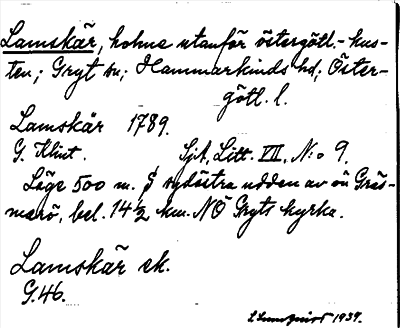 Lamskär, holme utanför östergötl.-kus-
ten; Gryt sn; Hammarkinds hd; Öster-
götl. l.
Lamskär 1789.
G. Klint. Sjk, Litt. VII, N:o 9.
Läge 500 m. S sydöstra udden av ön Gräs-
marö, bel. 14 1/2 km. NÖ Gryts kyrka.
Lamskär ek.
G.46.
1939.